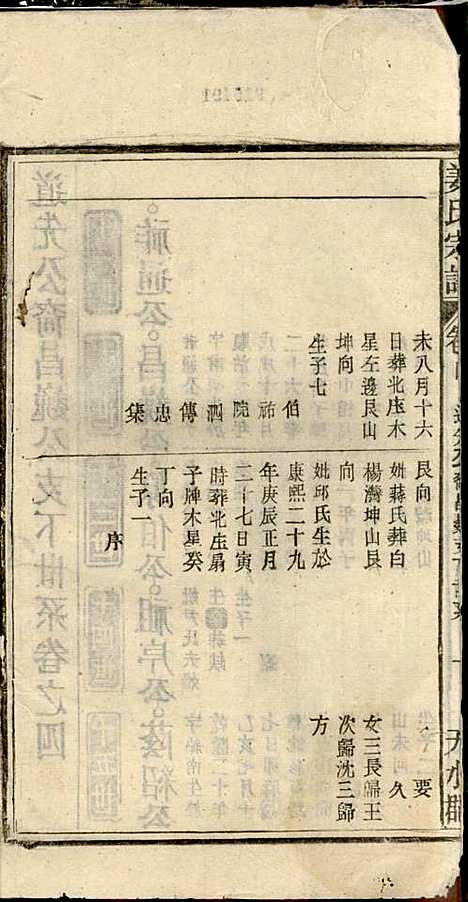 姜氏宗譜
未八月十六
日葬北庄木
星左邊艮山
坤向
生子七
伯
祐
院
泗
傳
忠
集
艮向
妣蔣氏葬白
楊灣坤山艮
向
妣邱氏生於
康熙二十九
年庚辰正月
二十七日寅
時葬北庄扇
子牌木星癸
丁向
生子一
序
要
久
女三長歸王
次歸沈三歸
方
天水郡